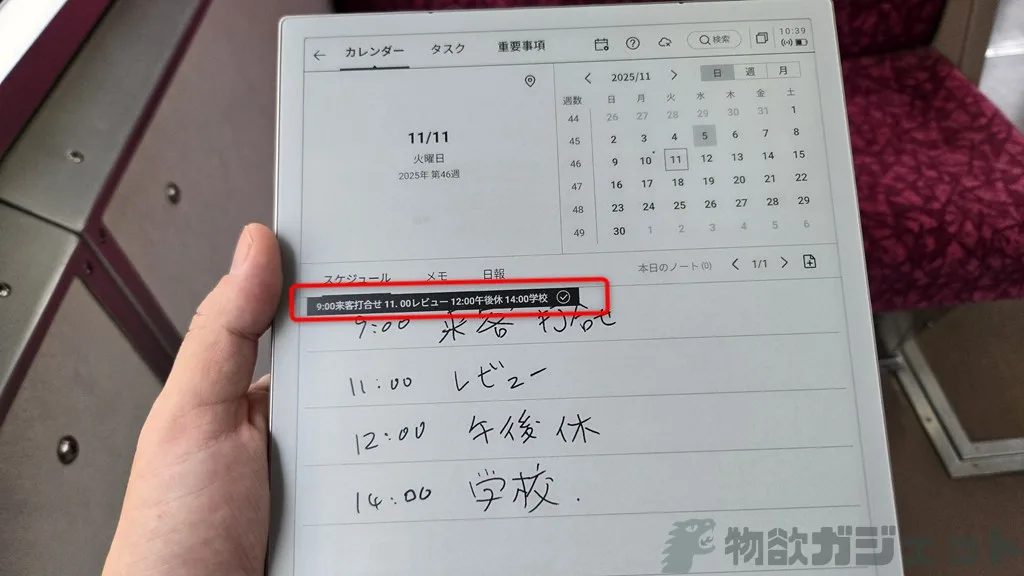 カレンダー タスク 重要事項 検索 10:39
11/11
火曜日
2025年 第46週
2025/11 日 週 月
週数 日 月 火 水 木 金 土
44 26 27 28 29 30 31 1
45 2 3 4 5 6 7 8
46 9 10 11 12 13 14 15
47 16 17 18 19 20 21 22
48 23 24 25 26 27 28 29
49 30 1 2 3 4 5 6
スケジュール メモ 日報 本日のノート(0) 1/1
9:00来客打合せ 11. 00レビュー 12:00午後休 14:00学校
9:00 来客 打合せ
11:00 レビュー
12:00 午後 休
14:00 学校.
物欲ガジェット